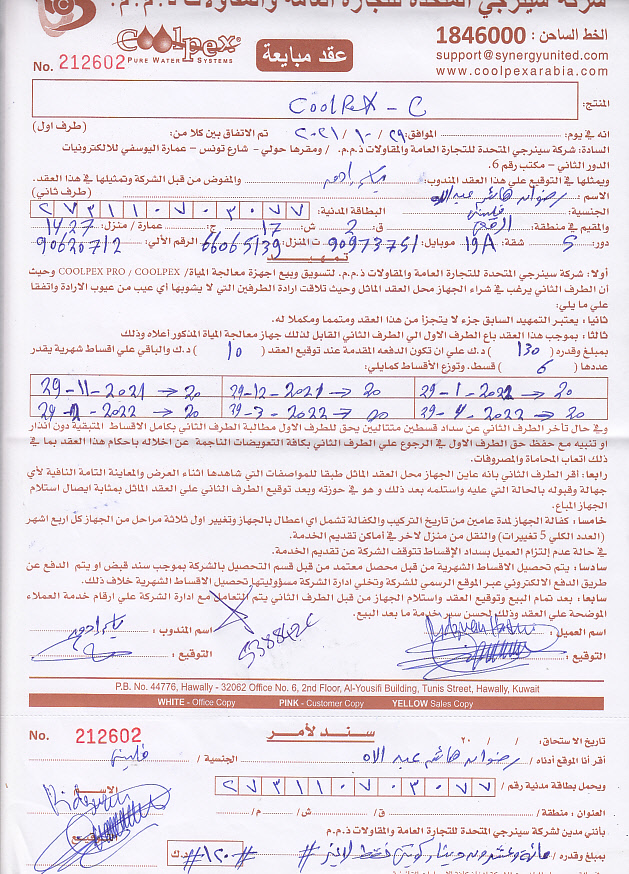 شركة سينرجي المتحدة للتجارة العامة والمقاولات ذ.م.م.
الخط الساخن : 1846000
support@synergyunited.com
www.coolpexarabia.com
عقد مبايعة
Coolpex®
PURE WATER SYSTEMS
No. 212602
المنتج: CoolPeX - C
انه في يوم: الموافق: ٢٩ / ١٠ / ٢٠٢١ تم الاتفاق بين كلا من: (طرف اول)
السادة: شركة سينرجي المتحدة للتجارة العامة والمقاولات ذ.م.م. / ومقرها حولي - شارع تونس - عمارة اليوسفي للالكترونيات
الدور الثاني - مكتب رقم 6.
ويمثلها في التوقيع علي هذا العقد المندوب: والمفوض من قبل الشركة وتمثيلها في هذا العقد.
الاسم : رضوان هاشم عبد الاه (طرف ثاني)
الجنسية: البطاقة المدنية: ٢٧٣١١٠٧٠٣٠٧٧
والمقيم في منطقة: ق: 2 ش: 17 ج: عمارة / منزل: 14,27
دور: 5 شقة: 19A موبايل: 90973751 ت المنزل: 66065139 الرقم الآلي: 90620712
تمهيد
أولا: شركة سينرجي المتحدة للتجارة العامة والمقاولات ذ.م.م. لتسويق وبيع اجهزة معالجة المياة/ COOLPEX PRO / COOLPEX وحيث
أن الطرف الثاني يرغب في شراء الجهاز محل العقد الماثل وحيث تلاقت ارادة الطرفين التي لا يشوبها اي عيب من عيوب الارادة واتفقا
علي ما يلي:
ثانيا: يعتبر التمهيد السابق جزء لا يتجزأ من هذا العقد ومتمما ومكملا له.
ثالثا: بموجب هذا العقد باع الطرف الاول الي الطرف الثاني القابل لذلك جهاز معالجة المياة المذكور أعلاه وذلك
بمبلغ وقدره ( 130 ) د.ك علي ان تكون الدفعه المقدمة عند توقيع العقد ( 10 ) د.ك والباقي علي اقساط شهرية يقدر
عددها ( 6 ) قسط. وتوزع الأقساط كمايلي:
29-11-2021 → 20 29-12-2021 → 20 29-1-2022 → 20
29-2-2022 → 20 29-3-2022 → 20 29-4-2022 → 20
وفي حال تأخر الطرف الثاني عن سداد قسطين متتاليين يحق للطرف الاول مطالبة الطرف الثاني بكامل الاقساط المتبقية دون انذار
او تنبيه مع حفظ حق الطرف الاول في الرجوع علي الطرف الثاني بكافة التعويضات الناجمة عن اخلاله باحكام هذا العقد بما في
ذلك اتعاب المحاماة والمصروفات.
رابعا: أقر الطرف الثاني بانه عاين الجهاز محل العقد الماثل طبقا للمواصفات التي شاهدها اثناء العرض والمعاينة التامة النافية لأي
جهالة وقبوله بالحالة التي عليه واستلمه بعد ذلك و هو في حوزته وبعد توقيع الطرف الثاني علي العقد الماثل بمثابة ايصال استلام
الجهاز المباع.
خامسا : كفالة الجهاز لمدة عامين من تاريخ التركيب والكفالة تشمل اي اعطال بالجهاز وتغيير اول ثلاثة مراحل من الجهاز كل اربع اشهر
(العدد الكلي 5 تغييرات) والنقل من منزل لاخر في أماكن تقديم الخدمة.
في حالة عدم إلتزام العميل بسداد الإقساط تتوقف الشركة عن تقديم الخدمة.
سادسا : يتم تحصيل الاقساط الشهرية من قبل محصل معتمد من قبل قسم التحصيل بالشركة بموجب سند قبض او يتم الدفع عن
طريق الدفع الالكتروني عبر الموقع الرسمي للشركة وتخلي ادارة الشركة مسؤوليتها تحصيل الاقساط الشهرية خلاف ذلك.
سابعا : بعد تمام البيع وتوقيع العقد واستلام الجهاز من قبل الطرف الثاني يتم التعامل مع ادارة الشركة علي ارقام خدمة العملاء
الموضحة علي العقد وذلك لحسن سير خدمة ما بعد البيع.
اسم العميل : اسم المندوب :
التوقيع : التوقيع :
P.B. No. 44776, Hawally - 32062 Office No. 6, 2nd Floor, Al-Yousifi Building, Tunis Street, Hawally, Kuwait
WHITE - Office Copy PINK - Customer Copy YELLOW Sales Copy
No. 212602
سند لأمر
تاريخ الاستحقاق: / / ٢٠
أقر أنا الموقع أدناه / رضوان هاشم عبد الاه الجنسية /
ويحمل بطاقة مدنية رقم / ٢٧٣١١٠٧٠٣٠٧٧
الاسم
العنوان : منطقة / ق/ ش/ م/
بأنني مدين لشركة سينرجي المتحدة للتجارة العامة والمقاولات ذ.م.م
بمبلغ وقدره / مائة وعشرون دينار كويتي فقط لاغير # #١٢٠# د.ك